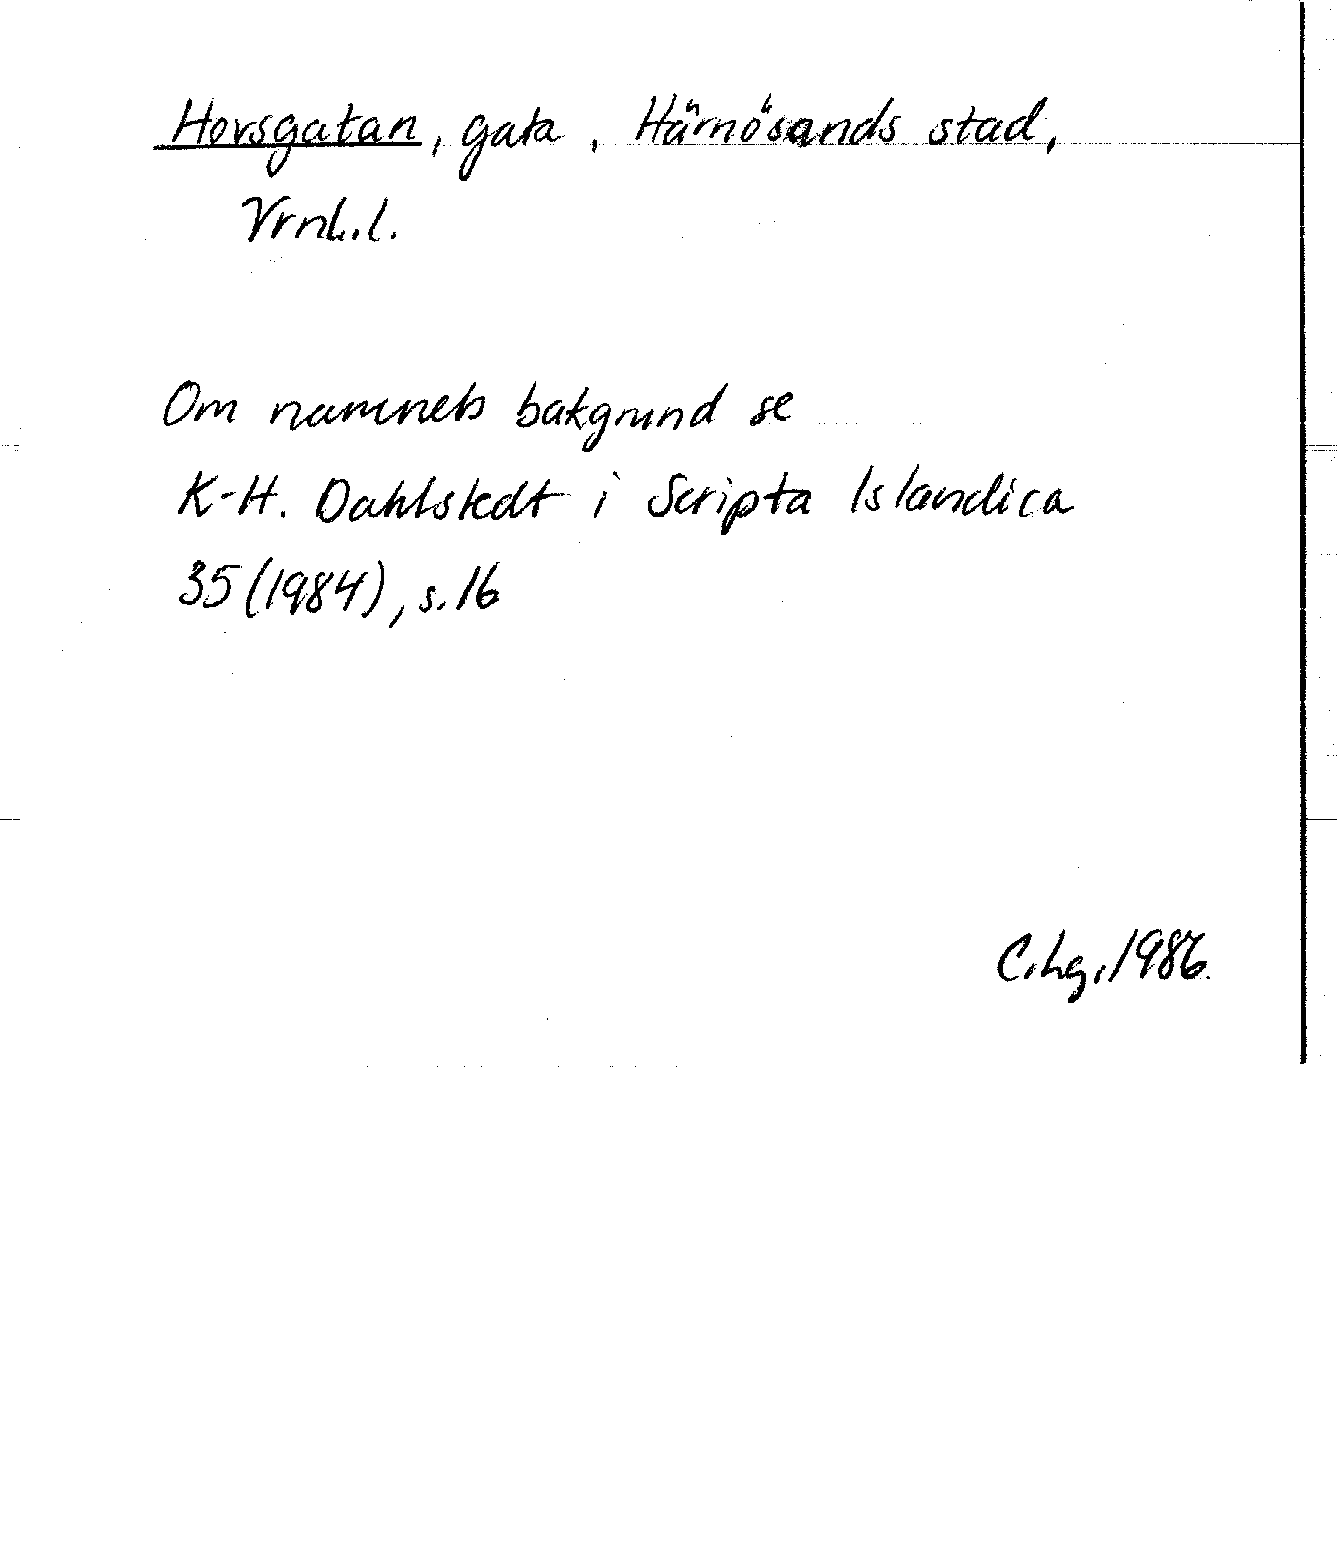 Hovsgatan, gata, Härnösands stad,
Vrnl.l.
Om namnets bakgrund se
K-H. Dahlstedt i Scripta Islandica
35 (1984), s. 16
C.hg. 1986.